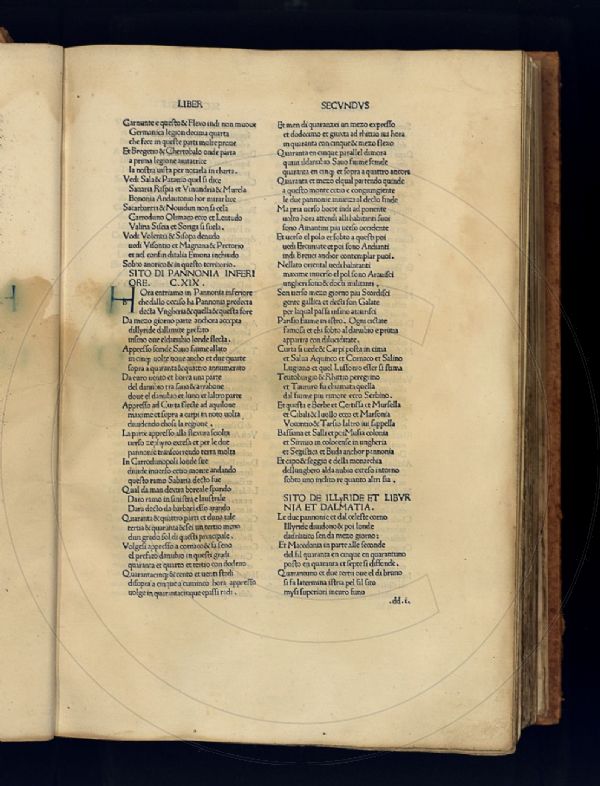 LIBER
SECVNDVS
Carnunte e questo & Flexo indi non muoue
Germanica legion decima quarta
che fece in queste parti molte proue
Et Bregetio & Chertobalo onde parta
a prima legione auitatrice
la nostra uista per notarla in charta.
Vedi Sala & Patauio quel si dice
Sauaria Rispia et Vinundria & Marela
Bononia Andautonio hor mirar luce
Sacarbantia & Nouidun non si cela
Carroduno Olimaco ecco et Lentudo
Valina Siseia et Songa si suela.
Vedi Volentia & Sisopa denudo
uedi Visontio et Magnana & Pretorio
et nel confin ditalia Emona inchiudo
Sobto anorico & in questo territorio.
SITO DI PANNONIA INFERI
ORE. C.XIX.
Hora entriamo in Pannonia inferiore
che dallo occaso ha Pannonia predecta
decta Vngheria & quella & questa fore
Da mezo giorno parte anchora accepta
dillyride dallimite prefato
insino oue eldanubio londe flecta.
Appresso sornde Sauo fiume allato
in cinqz uolte noue ancho et due quarte
sopra a quaranta & quattro annumerato
Da euro uento et borea una parte
del danubio tra sauo & arrabone
doue el danubio et luno et laltro parte
Appresso ad Curta flecte ad aquilone
maxime et sopra a carpi in noto uolta
diuidendo chosi la regione.
La parte appresso alla flexura sciolta
uerso zephyro excesh et per le due
pannonie transcorrendo terra molta
In Carrodunopoli londe sue
diuide inuerso ectio monte andando
questo ramo Sabaria decto fue
Qual da man dextra boreale spando
Daro ramo in sinistra e laustrale
Dara decto da barbari esso arando
Quaranta & quattro parti et duna tale
tertia & quaranta & sei un tertio meno
dun grado sol di questi principale.
Volgesi appresso a cornaco & fa seno
el prefato danubio in questi gradi
quaranta et quarto et tertio con dodeno
Quarantacinqz & cento et uenti stadi
disopra a cinque a cuminco hora appresso
uolge in quarantacinque epassi radi.
Et men di quarantasei un mezo expresso
et dodecimo et giunta ad rhittio sua hora
in quaranta con cinque & mezo flexo
Quaranta en cinque parallel dimora
quiui ildanubio Sauo fiume fende
quaranta en cinqz et sopra a quattro anchora
Quaranta et mezo elqual partendo quinde
a questo monte cetio e congiungiente
le due pannonie inuitrz al declo finde
Ma pria uerso borea indi ad ponente
uolto hora attendi alli habitanti suoi
sono Amantini piu uerso occidente
Et uerso el polo et sobto a questo poi
uedi Ercuniate et poi sono Andianti
indi Breuci anchor contemplar puoi.
Nellato oriental uedi habitanti
maxime inuerso el pol sono Arauisci
ungheri sono & dochi militanti.
Sen uerso mezo giorno piu Scordisci
gente gallica et decti sun Galate
per laqual passa insino atauriscî
Partisse fiume in istro. Ogni cictate
famosa et chi sobto al danubio e prima
apparira con diluciditate.
Curta si uede & Carpi posta in cima
et Salua Aquinco et Cornaco et Salino
Lugiono et quel Lussonio esser si stima
Teutoburgio & Rhittio peregrino
et Tauruo fu chiamata quella
dal fiume piu rumore ecco Serbino.
Et questa e Berbe et Certissa et Mursella
et Cibali & luollo ecco et Marsonia
Vocontio & Tarsio laltro iui sappella
Bassiana et Salla et poi Musia colonia
et Sirmio in colocense in ungheria
et Segistica et Buda anchor pannonia
Et capo & seggia e della monarchia
dellunghero alda nubio exteso intorno
sobto uno inclito re quanto altri sia.
SITO DE ILLYRIDE ET LIBVR
NIA ET DALMATIA.
Le due pannonie et dal celeste corno
Illyride diuidono & poi londe
dadriatico sen da mezo giorno:
Et Macedonia in parte alle seconde
del sil quaranta en cinque en quarantuno
posto en quaranta et septe si diffonde.
Quarantuno et due terza oue el di bruno
si fa latermina istria pel sil sito
mysi superiori incuro funo
.dd.i.